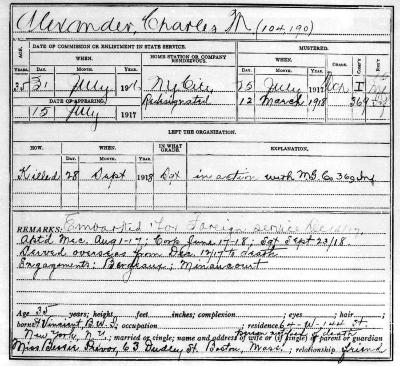 Alexander, Charles M. (104,190)
AGE.
DATE OF COMMISSION OR ENLISTMENT IN STATE SERVICE.
HOME STATION OR COMPANY RENDEZVOUS.
MUSTERED.
COMP'Y
REG'T
WHEN.
WHEN.
YEARS.
DAY.
MONTH.
YEAR.
DAY.
MONTH.
YEAR.
35
July
191
N.Y. City
25 July 1917
I
DATE OF APPEARING.
Redesignated
12 March 1918
369 Inf
15 July 1917
LEFT THE ORGANIZATION.
HOW.
WHEN.
IN WHAT GRADE.
EXPLANATION.
DAY.
MONTH.
YEAR.
Killed 28 Sept 1918 Sgt in action with M.G. Co. 369 Inf
REMARKS: Embarked for Foreign service Dec 12/17,
Aptd Mec. Aug 1-17; Corp June 17-18; Sgt Sept 23/18.
Served overseas from Dec. 12/17 to death
Engagements: Bergeaux; Minaucourt
Age 35 years; height feet inches; complexion ; eyes ; hair ;
born St Vincent, B.W.I; occupation ; residence 64-W-144 St.
New York, N.Y.; married or single; name and address of wife or (if single) of parent or guardian
person notified of death
Miss Bessie Trevor, 63 Dudley St. Boston, Mass.; relationship friend